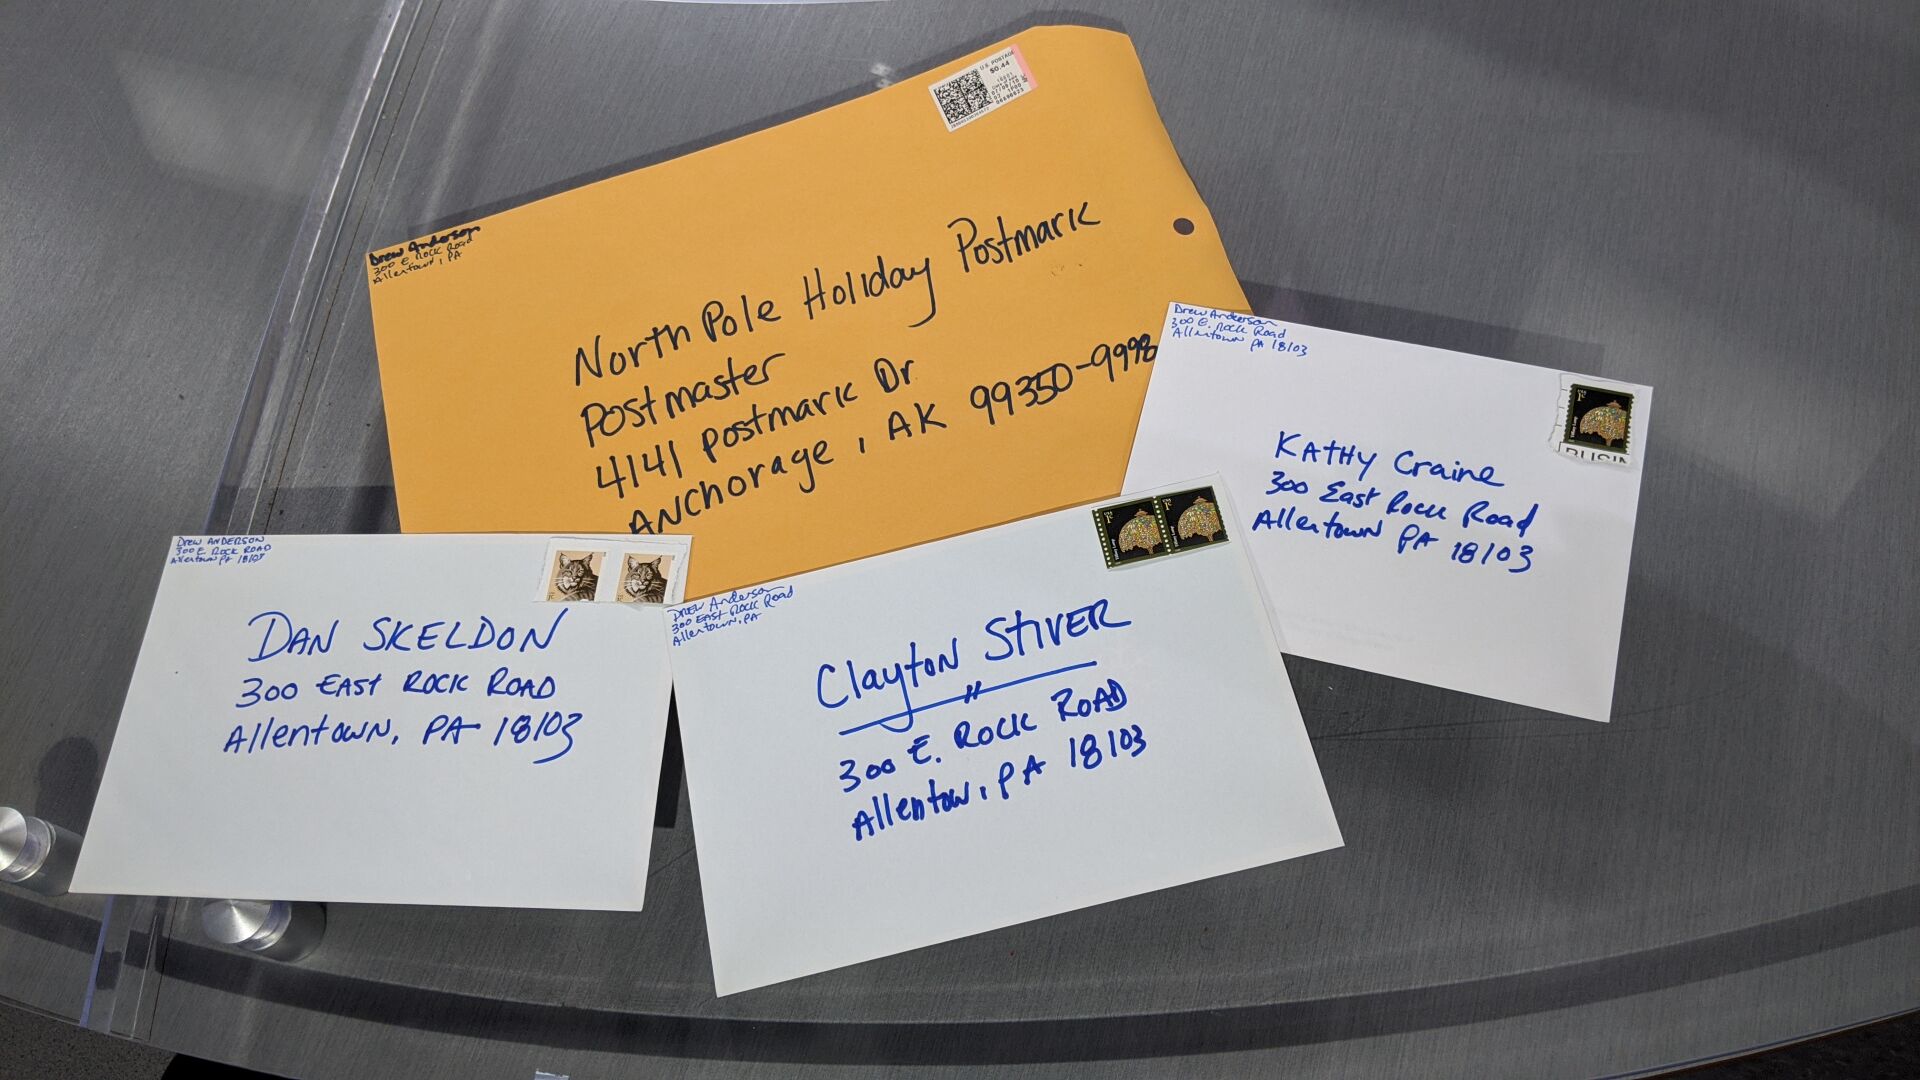 U.S. POSTAGE
$0.44
Drew Anderson
300 E. Rock Road
Allentown, PA
North Pole Holiday Postmark
Postmaster
4141 Postmark Dr
Anchorage, AK 99350-9998
Drew Anderson
300 E. Rock Road
Allentown PA 18103
USA
1¢
BUSIN
KATHY Craine
300 East Rock Road
Allentown PA 18103
Drew ANDERSON
300 E. ROCK ROAD
Allentown PA 18103
DAN SKELDON
300 EAST ROCK ROAD
Allentown, PA 18103
Drew Anderson
300 EAST Rock Road
Allentown, PA
USA
1¢
USA
1¢
Clayton STIVER
300 E. ROCK ROAD
Allentow, PA 18103